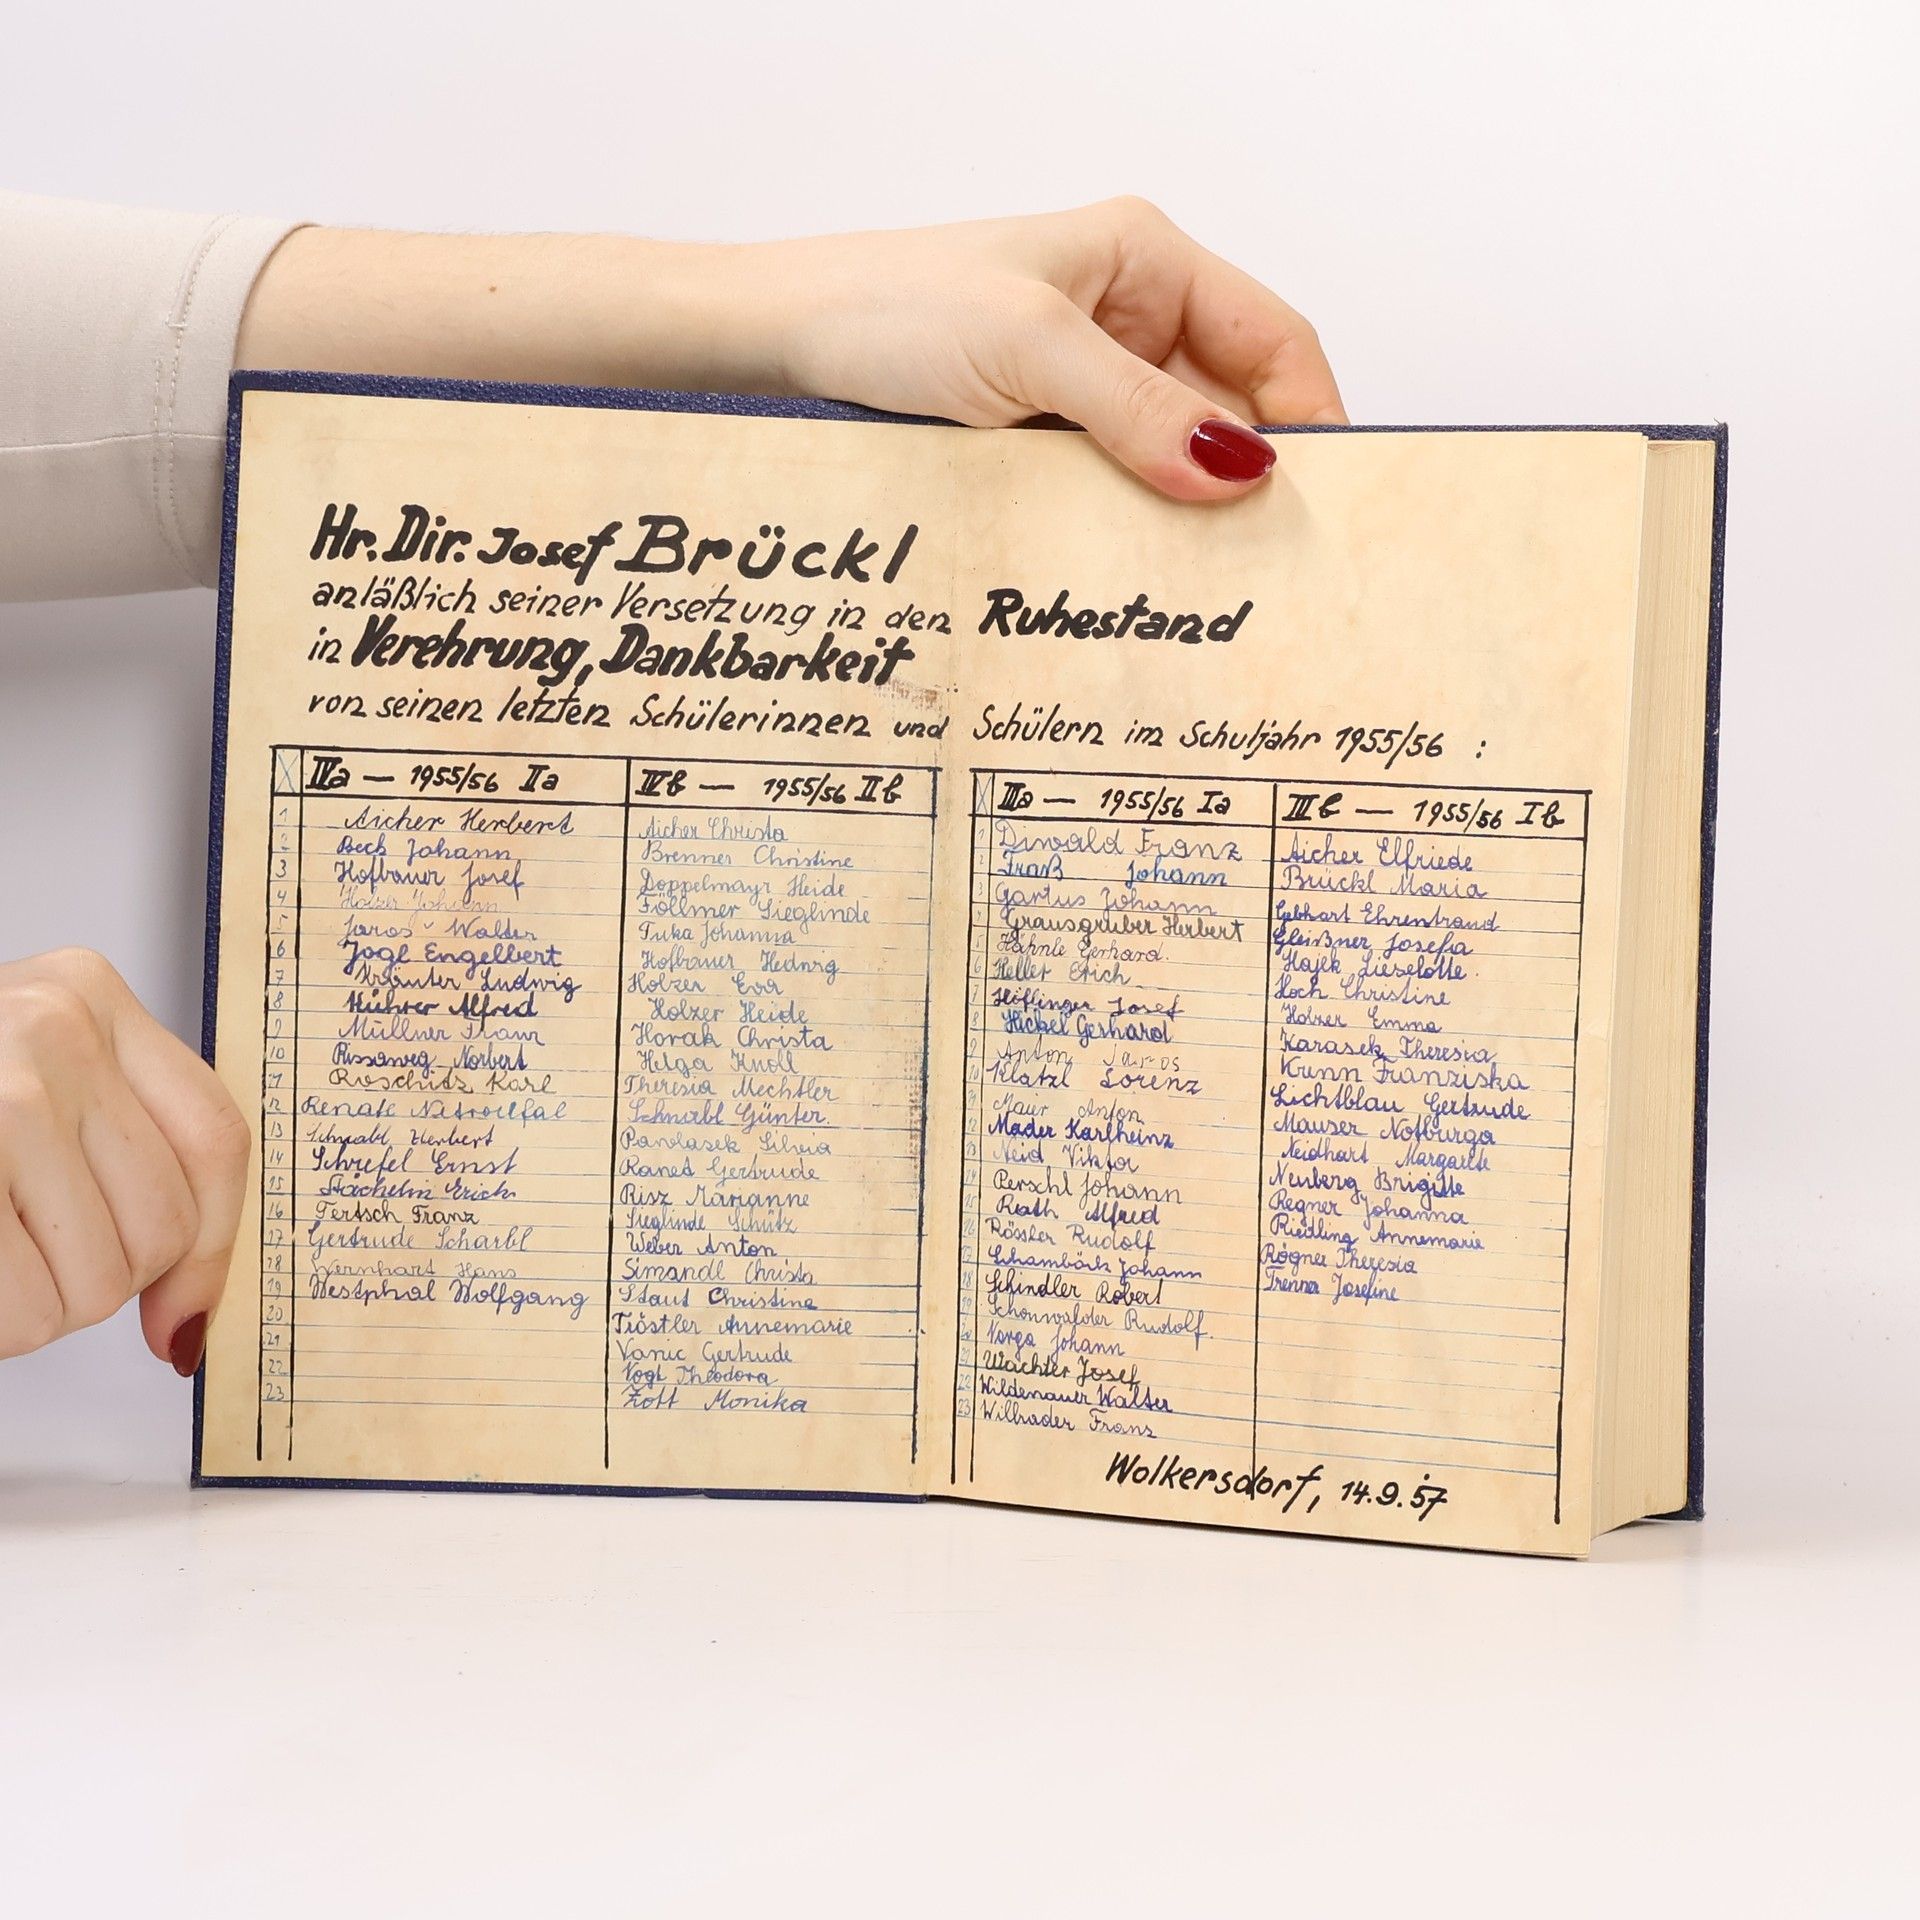 Hr. Dir. Josef Brückl
anläßlich seiner Versetzung in den Ruhestand
in Verehrung, Dankbarkeit
von seinen letzten Schülerinnen und Schülern im Schuljahr 1955/56 :
X IVa — 1955/56 IIa IVb — 1955/56 IIb
1 Aicher Herbert Aicher Christa
2 Beck Johann Brenner Christine
3 Hofbauer Josef Doppelmayr Heide
4 Holzer Johann Föllmer Sieglinde
5 Jaros Walter Johanna
6 Jogl Engelbert Hofbauer Hedwig
7 Kräuter Ludwig Holzer Eva
8 Kührer Alfred Holzer Heide
9 Müllner Franz Horak Christa
10 Rissaweg Norbert Helga Knoll
11 Roschitz Karl Theresia Mechtler
12 Renate Schnabl Günter.
13 Schnabl Herbert Pavlasek Silvia
14 Schrefel Ernst Raned Gertrude
15 Stächelin Erich Risz Marianne
16 Tertsch Franz Sieglinde Schütz
17 Gertrude Scharbl Weber Anton
18 Wernhart Hans Simandl Christa
19 Westphal Wolfgang Staut Christine
20 Tröstler Annemarie
21 Vanic Gertrude
22 Vogt Theodora
23 Zott Monika
X IIIa — 1955/56 Ia IIIb — 1955/56 Ib
1 Diwald Franz Aicher Elfriede
2 Fraß Johann Brückl Maria
3 Gartus Johann Gebhart Ehrentraud
4 Grausgruber Herbert Gleißner Josefa
5 Hähnle Gerhard. Hajek Lieselotte.
6 Heller Erich Hoch Christine
7 Höflinger Josef Holzer Emma
8 Hickel Gerhard Karasek Theresia
9 Anton Jaros Krenn Franziska
10 Klatzl Lorenz Lichtblau Gertrude
11 Maier Anton Mauser Notburga
12 Mader Karlheinz Neidhart Margarete
13 Neid Viktor Neuberg Brigitte
14 Perschl Johann Regner Johanna
15 Rath Alfred Riedling Annemarie
16 Rössler Rudolf Rögner Theresia
17 Schamböck Johann Trenner Josefine
18 Schindler Robert
19 Schönwälder Rudolf.
20 Varga Johann
21 Wachter Josef
22 Wildenauer Walter
23 Willrader Franz
Wolkersdorf, 14.9.57